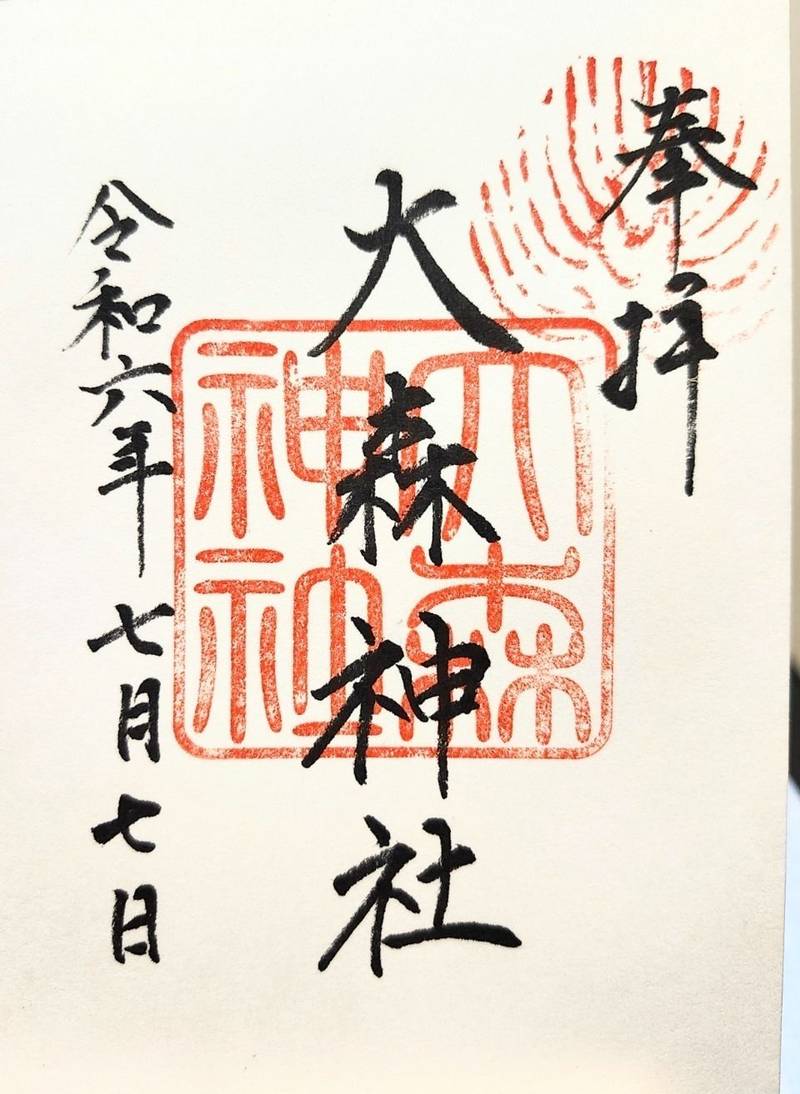 奉拝
大森神社
大森神社
令和六年七月七日